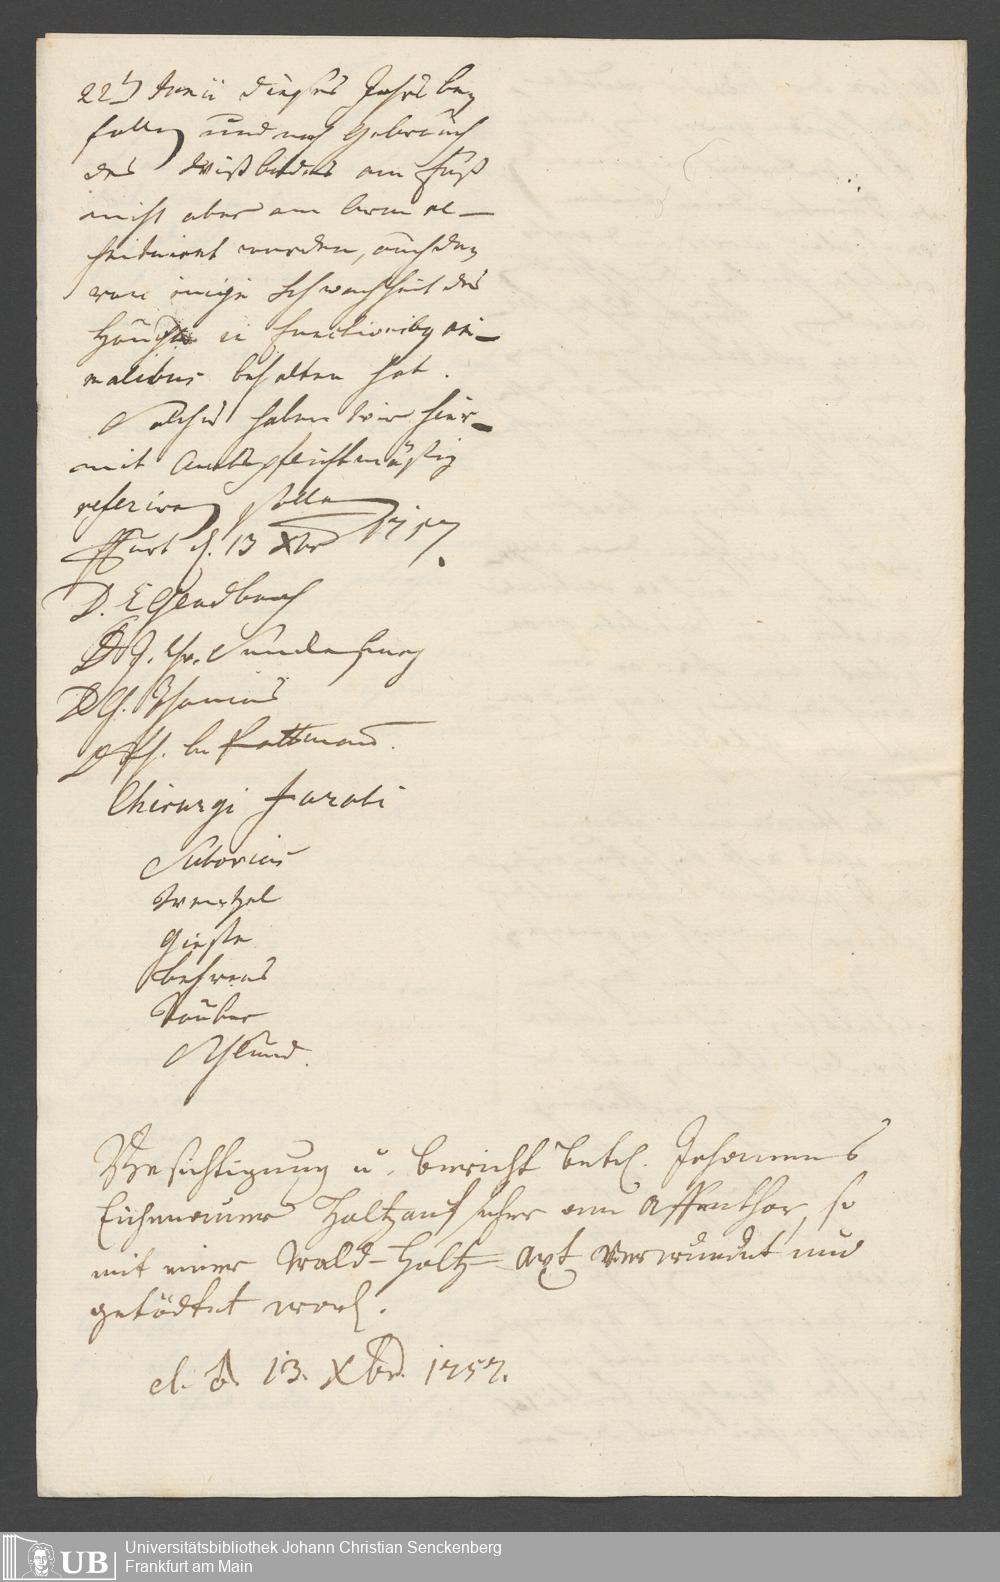 22t Junii dießes Jahrs bey
fallen und nach Gebrauch
des Wißbades am Fuß
nicht aber am Arm re-
stituiret worden, auch dan
von einige Schwachheit des
in functionibg ani-
malibus behalten hat.
Solches haben wir hier-
mit Amtspflichtmäßig
referiren sollen
Ffurt d. 13 Xbr 1757.
D. E Gladbach
D J. Chr. Senckenberg
D G.
D Ph. Br Pettmann.
Chirurgi Jurati
Sutorius
Wentzel
Gieße
Behrens
Tauber
Schlund.
Besichtigung u. Bericht betrf. Johannes
Holtzaufseher am Affenthor, so
mit einer Wald-Holtz-Axt verwundet und
getödtet word.
d. d. 13. Xbr. 1757.
Universitätsbibliothek Johann Christian Senckenberg
UB Frankfurt am Main